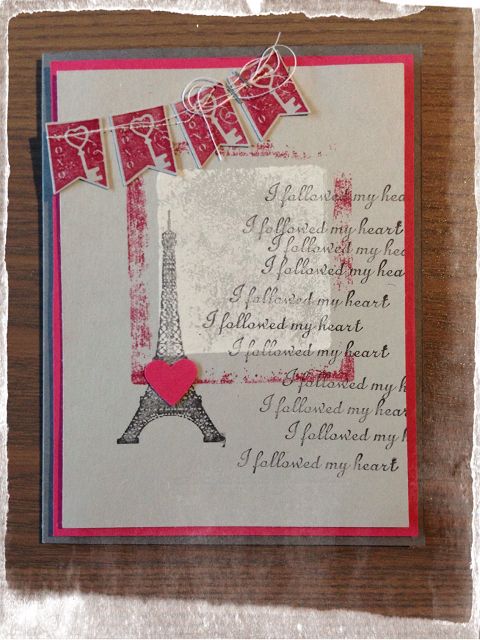 I followed my hea
I followed my heart
I followed my heart
I followed my hear
I followed my heart
I followed my heart
I followed my heart
I followed my h
I followed my hear
I followed my h
I followed my heart